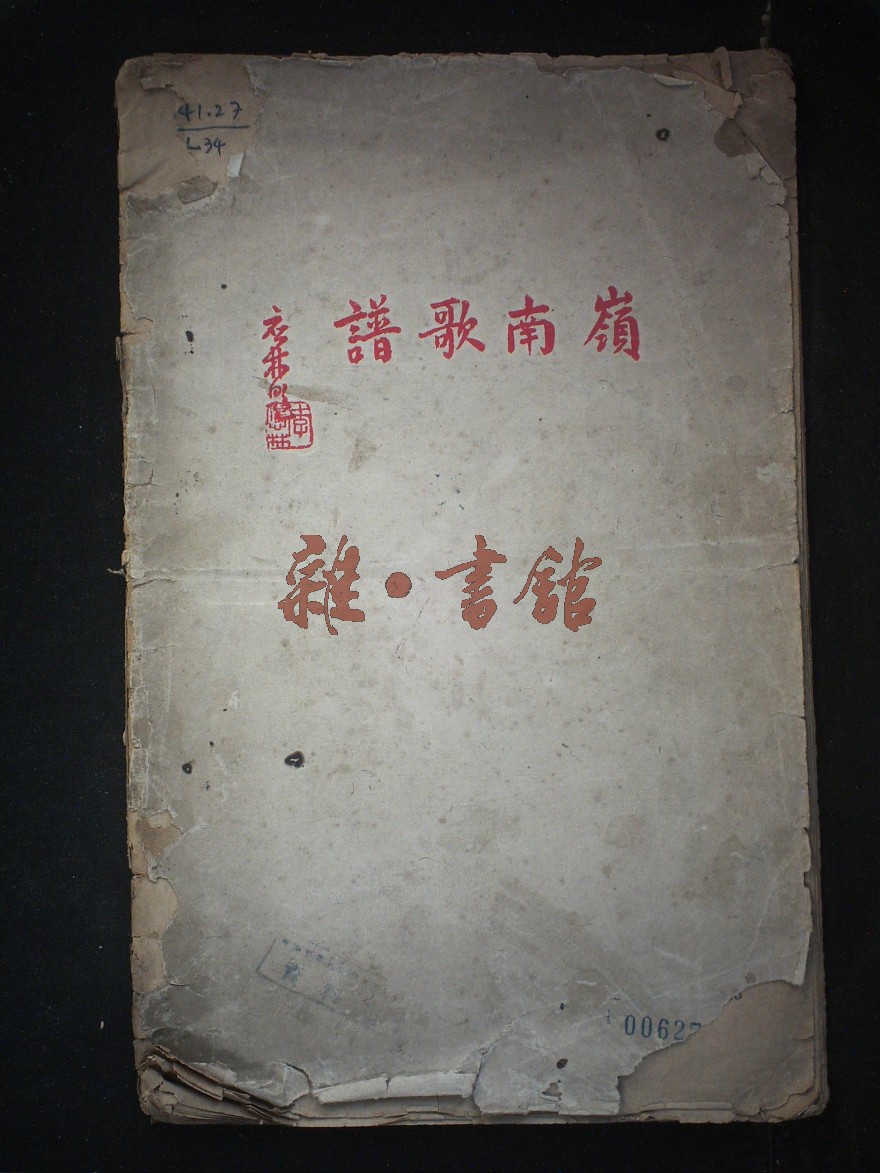 41.27
L34
嶺南歌譜
雜·書館
00627